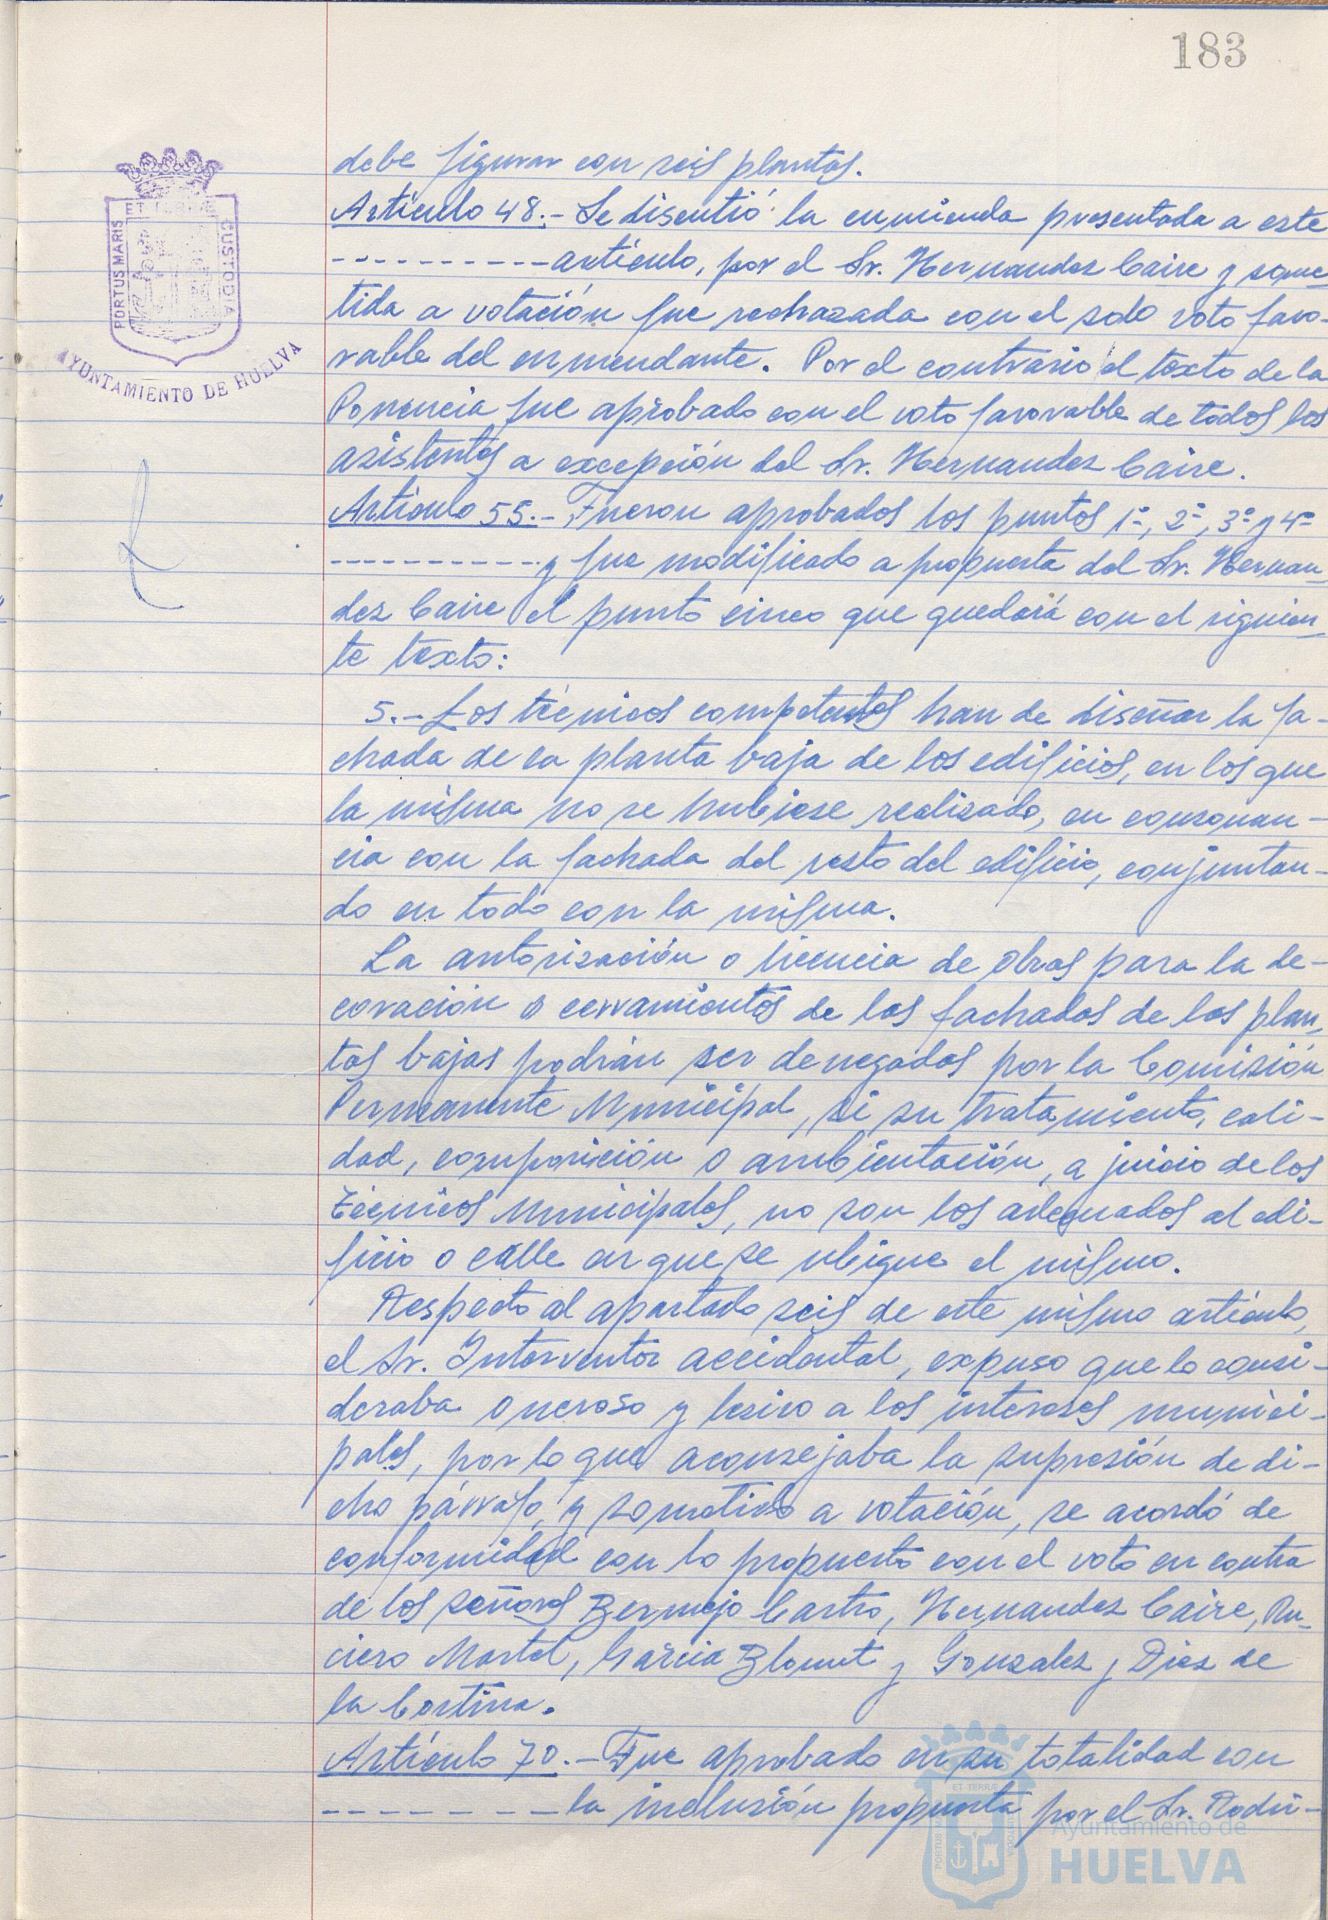 183
debe figurar con seis plantas.
Artículo 48.- Se discutió la enmienda presentada a este
----------artículo, por el Sr. Hernandez Caire y some-
tida a votación fue rechazada con el solo voto favo-
rable del enmendante. Por el contrario el texto de la
Ponencia fue aprobado con el voto favorable de todos los
asistentes a excepción del Sr. Hernandez Caire.
Artículo 55.- Fueron aprobados los puntos 1º, 2º, 3º y 4º
----------y fue modificado a propuesta del Sr. Hernan-
dez Caire el punto cinco que quedará con el siguien-
te texto:
5.- Los técnicos competentes han de diseñar la fa-
chada de la planta baja de los edificios, en los que
la misma no se hubiese realizado, en consonan-
cia con la fachada del resto del edificio, conjuntan-
do en todo con la misma.
La autorización o licencia de obras para la de-
coración o cerramientos de las fachadas de las plan-
tas bajas podrán ser denegadas por la Comisión
Permanente Municipal, si su tratamiento, cali-
dad, composición o ambientación, a juicio de los
Técnicos Municipales, no son los adecuados al edi-
ficio o calle en que se ubique el mismo.
Respecto al apartado seis de este mismo artículo,
el Sr. Interventor accidental, expuso que lo consi-
deraba oneroso y lesivo a los intereses munici-
pales, por lo que aconsejaba la supresión de di-
cho párrafo, y sometido a votación, se acordó de
conformidad con lo propuesto con el voto en contra
de los señores Bermejo Castro, Hernandez Caire, Ru-
ciero Martel, García Blount y Gonzalez y Diez de
la Cortina.
Artículo 70.- Fue aprobado en su totalidad con
--------la inclusión propuesta por el Sr. Rodrí-
PORTUS MARIS
ET TERRAE
CUSTODIA
AYUNTAMIENTO DE HUELVA
ET TERRAE
Ayuntamiento de
HUELVA